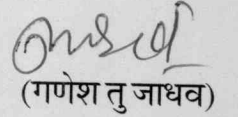 (गणेश तु जाधव)